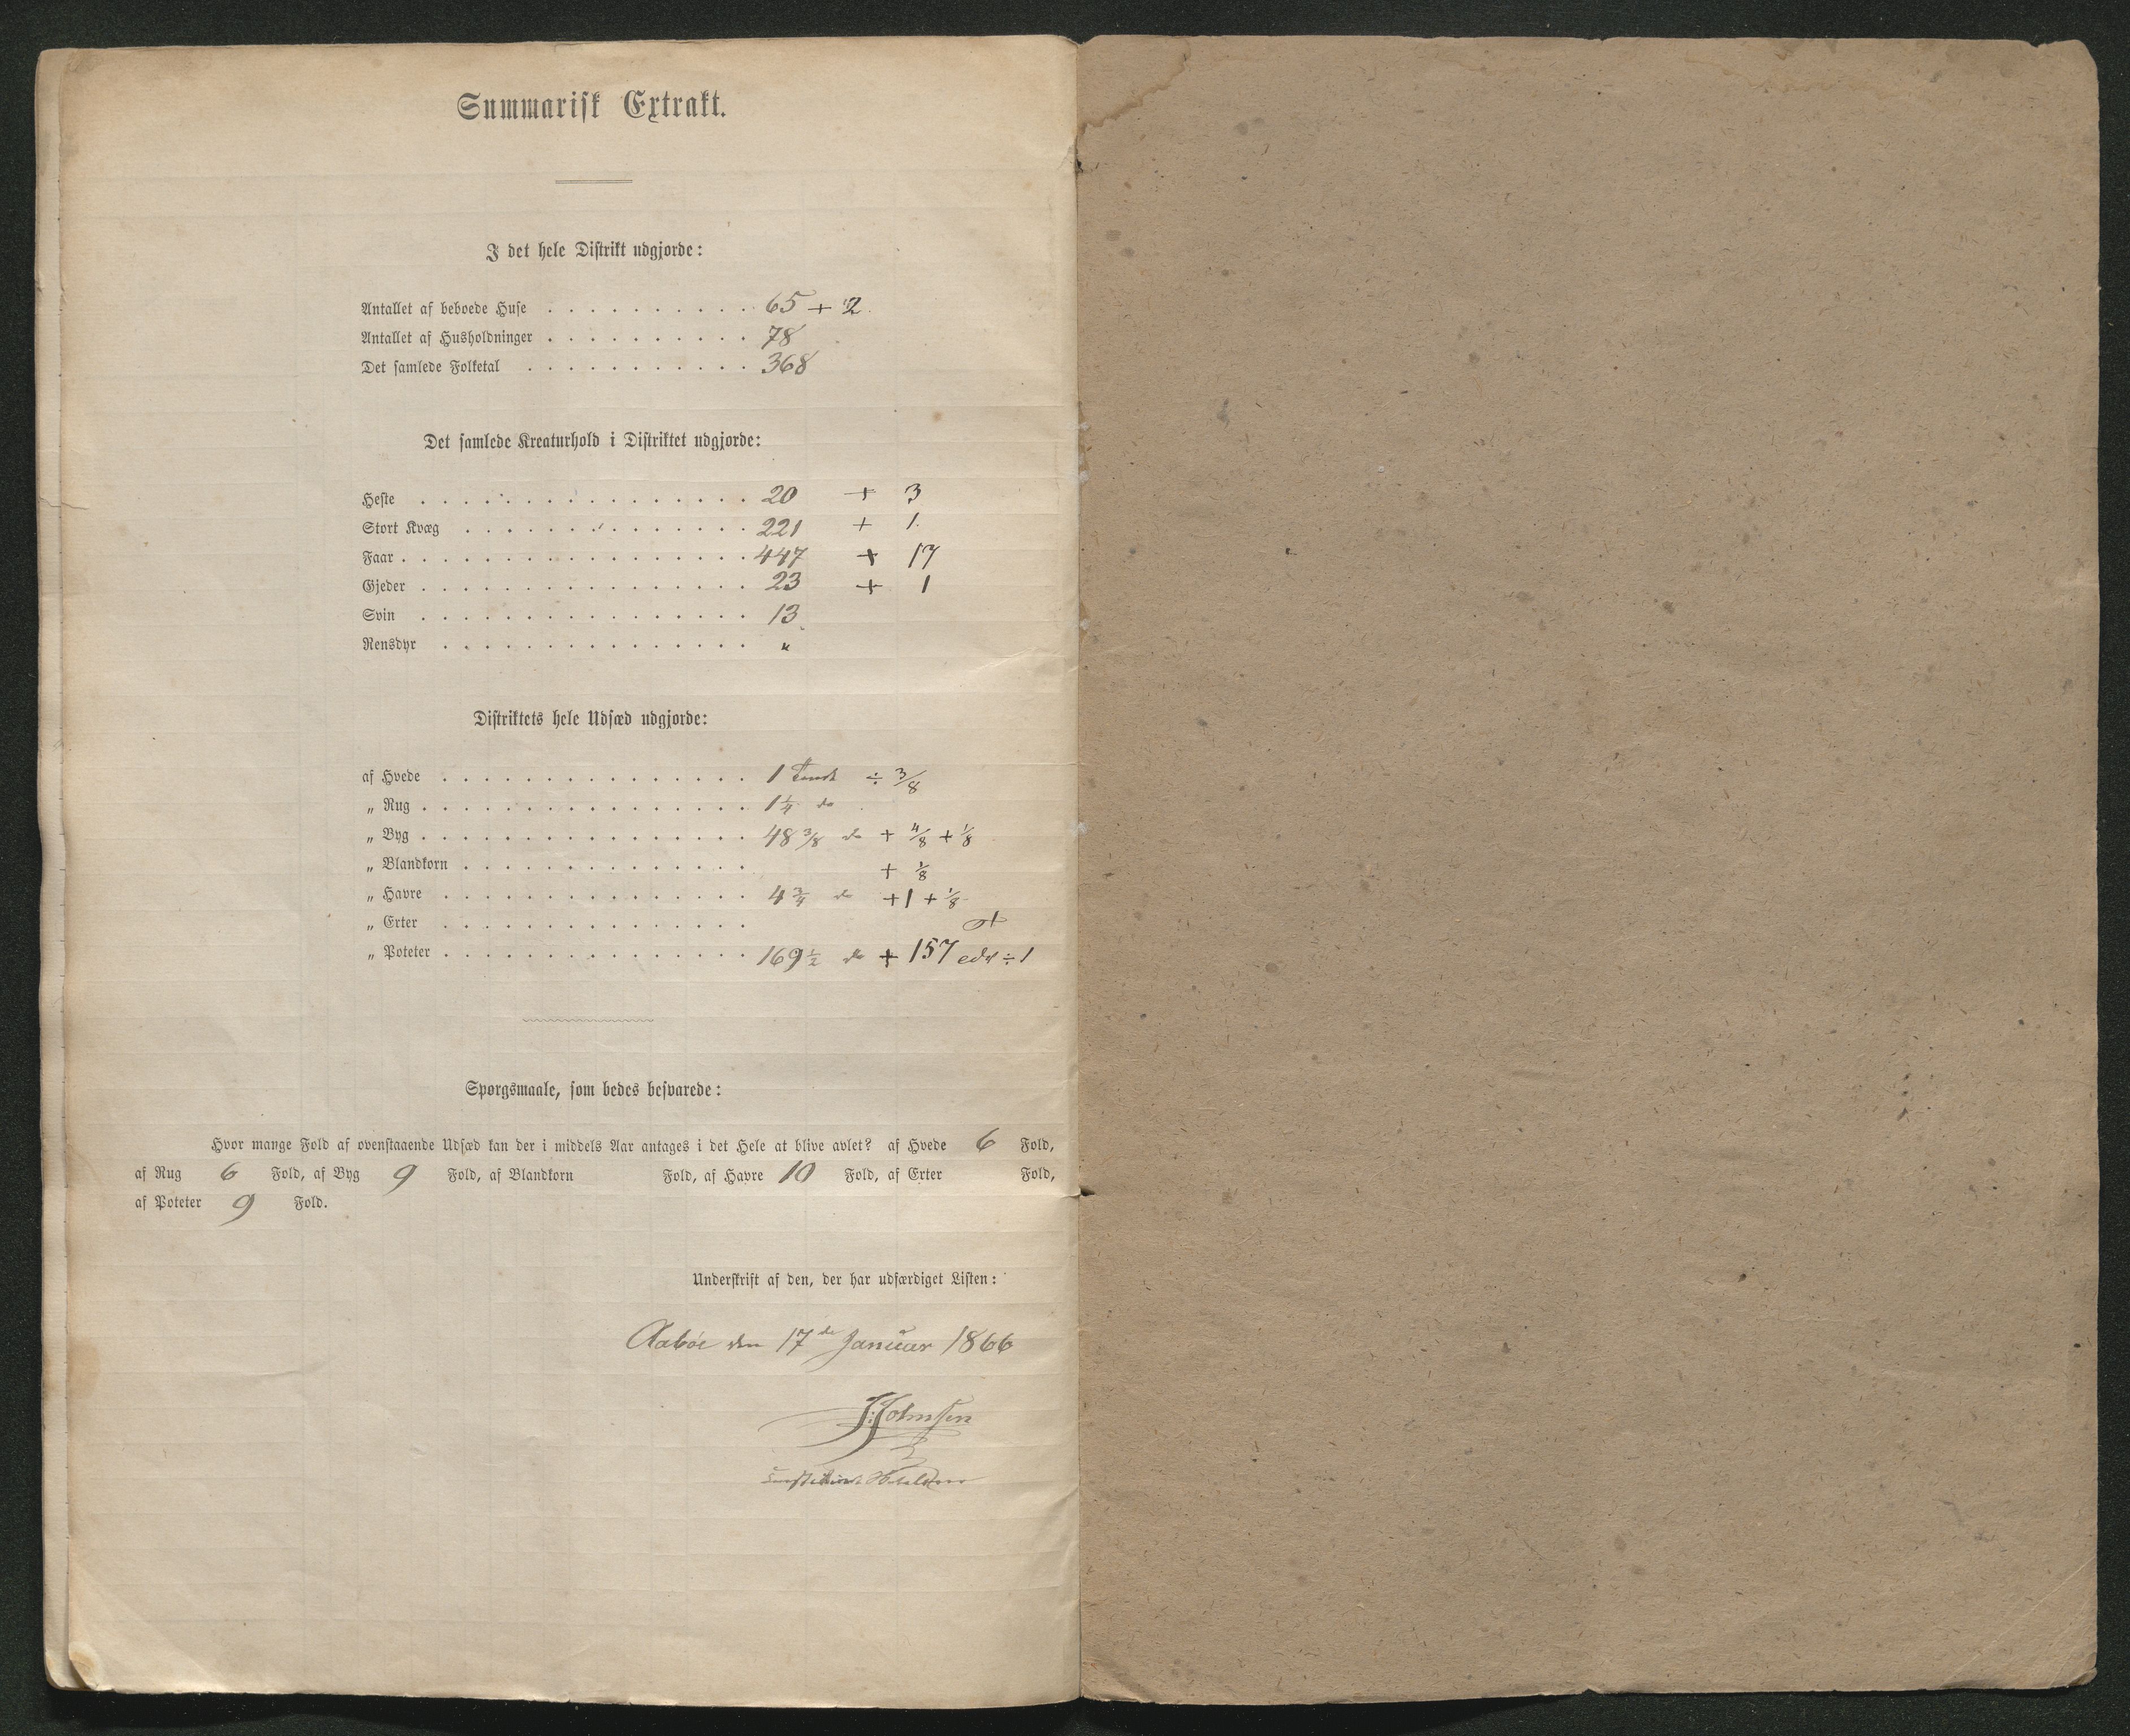 Summarisk Extrakt.
I det hele Distrikt udgjorde:
Antallet af beboede Huse . . . . . . . . . . 65 + 2.
Antallet af Husholdninger . . . . . . . . . . 78
Det samlede Folketal . . . . . . . . . . . 368
Det samlede Kreaturhold i Distriktet udgjorde:
Heste . . . . . . . . . . . . . . . . 20 + 3
Stort Kvæg . . . . . . . . . . . . . . 221 + 1.
Faar . . . . . . . . . . . . . . . . . 447 + 17
Gjeder . . . . . . . . . . . . . . . . 23 + 1
Svin . . . . . . . . . . . . . . . . 13
Rensdyr . . . . . . . . . . . . . . . "
Distriktets hele Udsæd udgjorde:
af Hvede . . . . . . . . . . . . . . . 1 Tønde ÷ 3/8
„ Rug . . . . . . . . . . . . . . . . 1 1/4 do
„ Byg . . . . . . . . . . . . . . . . 48 3/8 do + 4/8 + 1/8
„ Blandkorn . . . . . . . . . . . . . . + 1/8
„ Havre . . . . . . . . . . . . . . . 4 3/4 do +1 + 1/8
„ Erter . . . . . . . . . . . . . . .
„ Poteter . . . . . . . . . . . . . . . 169 1/2 do + 157 ÷ 1
Spørgsmaale, som bedes besvarede:
Hvor mange Fold af ovenstaaende Udsæd kan der i middels Aar antages i det Hele at blive avlet? af Hvede 6 Fold,
af Rug 6 Fold, af Byg 9 Fold, af Blandkorn Fold, af Havre 10 Fold, af Erter Fold,
af Poteter 9 Fold.
Underskrift af den, der har udfærdiget Listen:
Aabøe den 17de Januar 1866
J. Johnsen